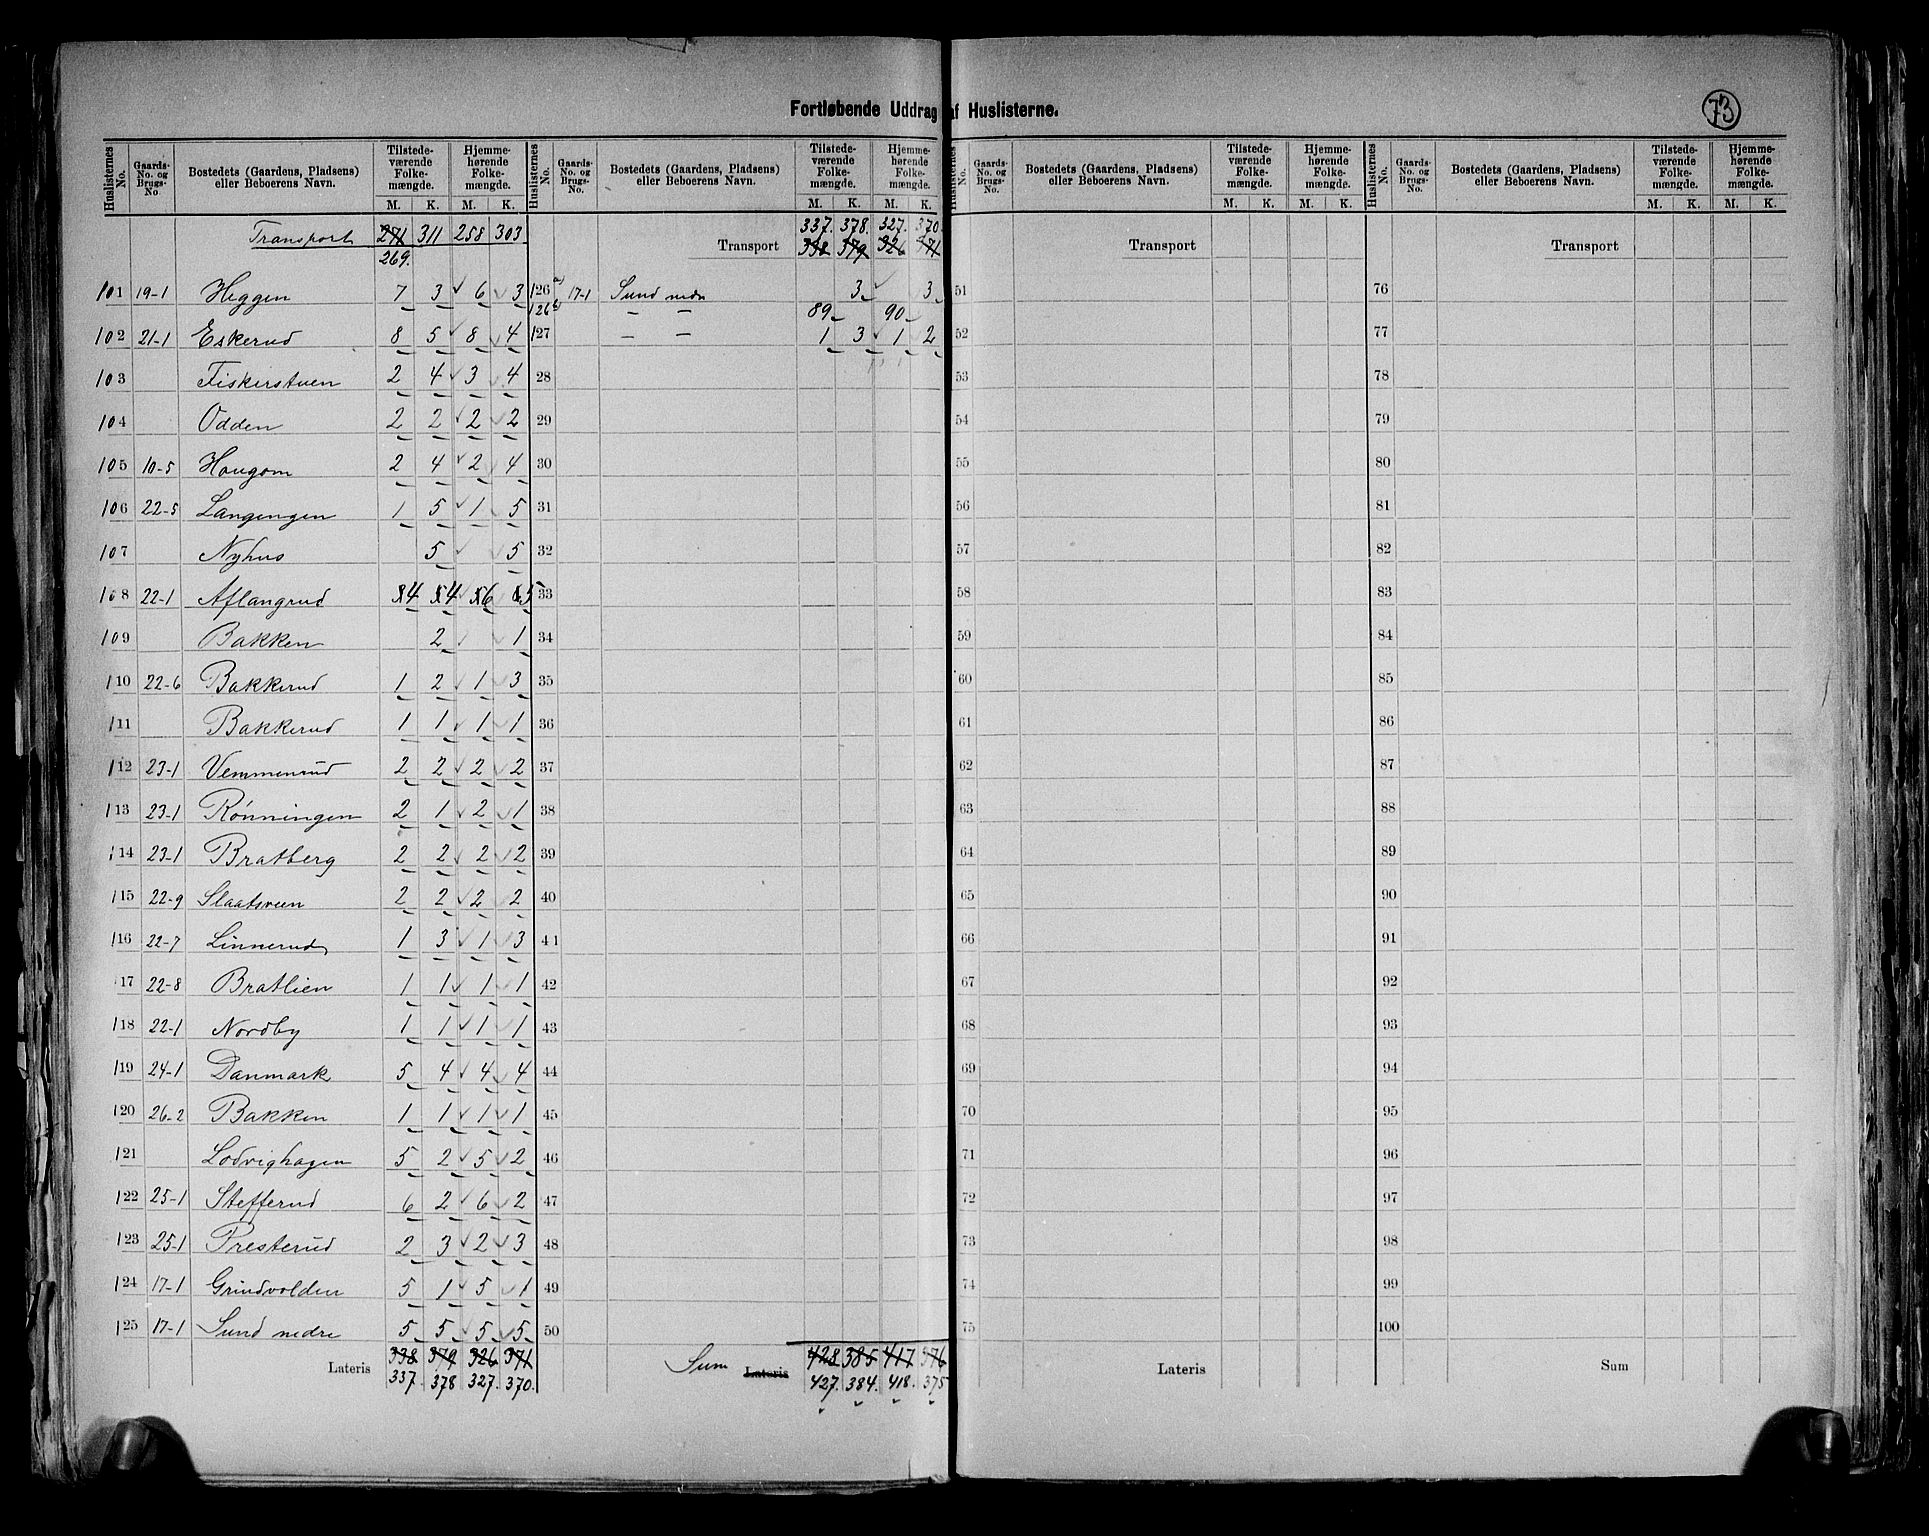 Fortløbende Uddrag af Huslisterne.
73
Huslisternes No. Gaards-No. og Brugs-No. Bostedets (Gaardens, Pladsens) eller Beboerens Navn. Tilstedeværende Folkemængde. M. K. Hjemmehørende Folkemængde. M. K.
Transport 271 311 258 303
269.
101 19-1 Heggen 7 3 6 3
102 21-1 Eskerud 8 5 8 4
103 Fiskerstuen 2 4 3 4
104 Odden 2 2 2 2
105 10-5 Haugom 2 4 2 4
106 22-5 Langengen 1 5 1 5
107 Nyhus 5 5
108 22-1 Aflangrud 4 4 6 5
109 Bakken 2 1
110 22-6 Bakkerud 1 2 1 3
111 Bakkerud 1 1 1 1
112 23-1 Vemmenrud 2 2 2 2
113 23-1 Rønningen 2 1 2 1
114 23-1 Bratberg 2 2 2 2
115 22-9 Slaatsveen 2 2 2 2
116 22-7 Linnerud 1 3 1 3
117 22-8 Bratlien 1 1 1 1
118 22-1 Nordby 1 1 1 1
119 24-1 Danmark 5 4 4 4
120 26-2 Bakken 1 1 1 1
121 Lodvighagen 5 2 5 2
122 25-1 Stefferud 6 2 6 2
123 25-1 Presterud 2 3 2 3
124 17-1 Grindvolden 5 1 5 1
125 17-1 Sund nedre 5 5 5 5
Lateris 338 379 326 371
337. 378 327. 370.
Huslisternes No. Gaards-No. og Brugs-No. Bostedets (Gaardens, Pladsens) eller Beboerens Navn. Tilstedeværende Folkemængde. M. K. Hjemmehørende Folkemængde. M. K.
337. 378. 327. 370.
Transport 338 379 326 371
126 a) 17-1 Sund nedr 3 3
126 b) — — 89 90
127 — — 1 3 1 2
28
29
30
31
32
33
34
35
36
37
38
39
40
41
42
43
44
45
46
47
48
49
50
Sum Lateris 428 385 417 376
427. 384. 418. 375
Huslisternes No. Gaards-No. og Brugs-No. Bostedets (Gaardens, Pladsens) eller Beboerens Navn. Tilstedeværende Folkemængde. M. K. Hjemmehørende Folkemængde. M. K.
Transport
51
52
53
54
55
56
57
58
59
60
61
62
63
64
65
66
67
68
69
70
71
72
73
74
75
Lateris
Huslisternes No. Gaards-No. og Brugs-No. Bostedets (Gaardens, Pladsens) eller Beboerens Navn. Tilstedeværende Folkemængde. M. K. Hjemmehørende Folkemængde. M. K.
Transport
76
77
78
79
80
81
82
83
84
85
86
87
88
89
90
91
92
93
94
95
96
97
98
99
100
Sum